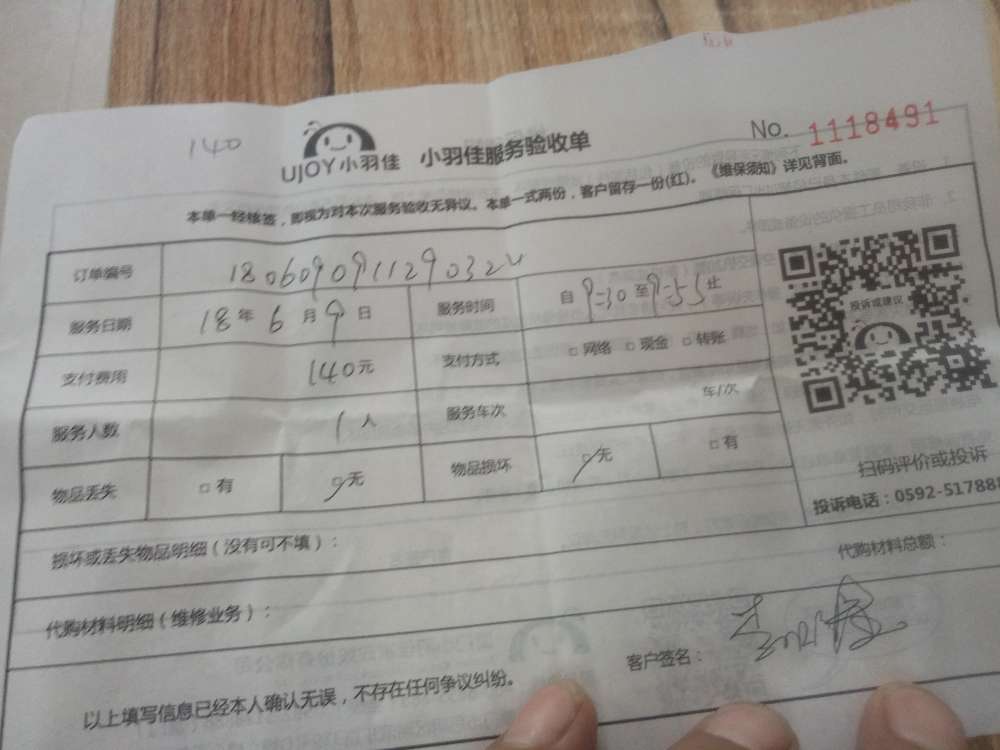 140
UJOY小羽佳 小羽佳服务验收单 No. 1118491
本单一经核签，即视为对本次服务验收无异议。本单一式两份，客户留存一份(红)。《维保须知》详见背面。
订单编号 1806090911290324
服务日期 18年6月9日 服务时间 自9:30至9:55止
支付费用 140元 支付方式 □网络 □现金 □转账
服务人数 1人 服务车次 车/次
物品丢失 □有 □无 物品损坏 □无 □有
投诉或建议
扫码评价或投诉
投诉电话：0592-517888
损坏或丢失物品明细（没有可不填）：
代购材料明细（维修业务）： 代购材料总额：
以上填写信息已经本人确认无误，不存在任何争议纠纷。 客户签名：